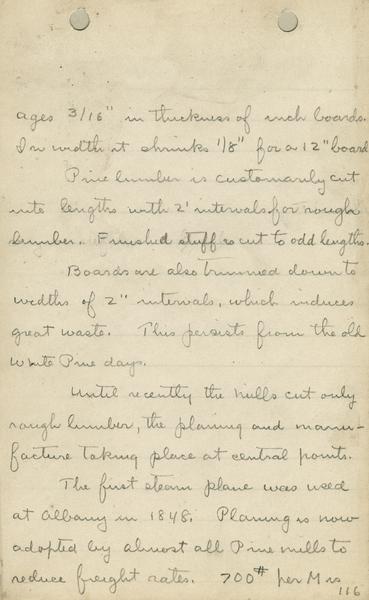 ages 3/16" in thickness of inch boards.
In width it shrinks 1/8" for a 12" board
Pine lumber is customarily cut
into lengths with 2' intervals for rough
lumber. Finished stuff is cut to odd lengths.
Boards are also trimmed down to
widths of 2" intervals, which induces
great waste. This persists from the old
White Pine days.
Until recently the mills cut only
rough lumber, the planing and manu-
facture taking place at central points.
The first steam plane was used
at Albany in 1848. Planing is now
adopted by almost all Pine mills to
reduce freight rates. 700# per M is
116